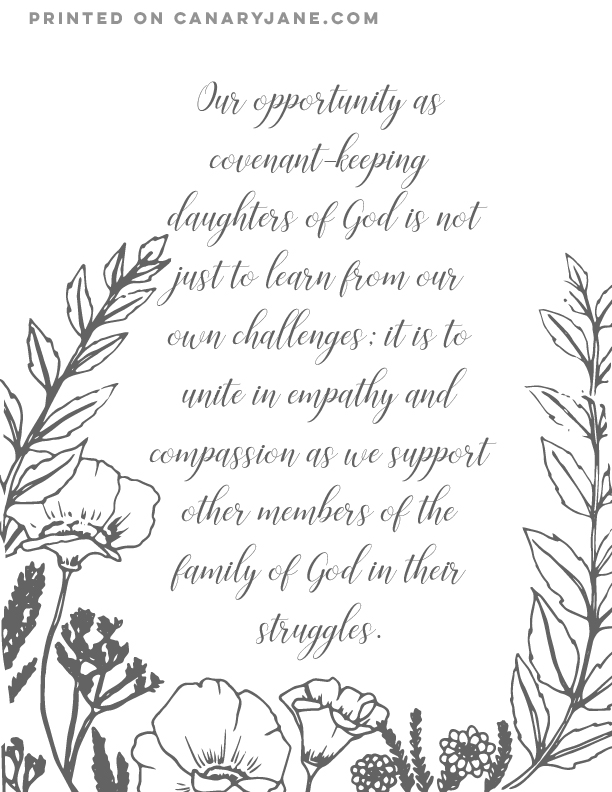 PRINTED ON CANARYJANE.COM
Our opportunity as
covenant-keeping
daughters of God is not
just to learn from our
own challenges; it is to
unite in empathy and
compassion as we support
other members of the
family of God in their
struggles.